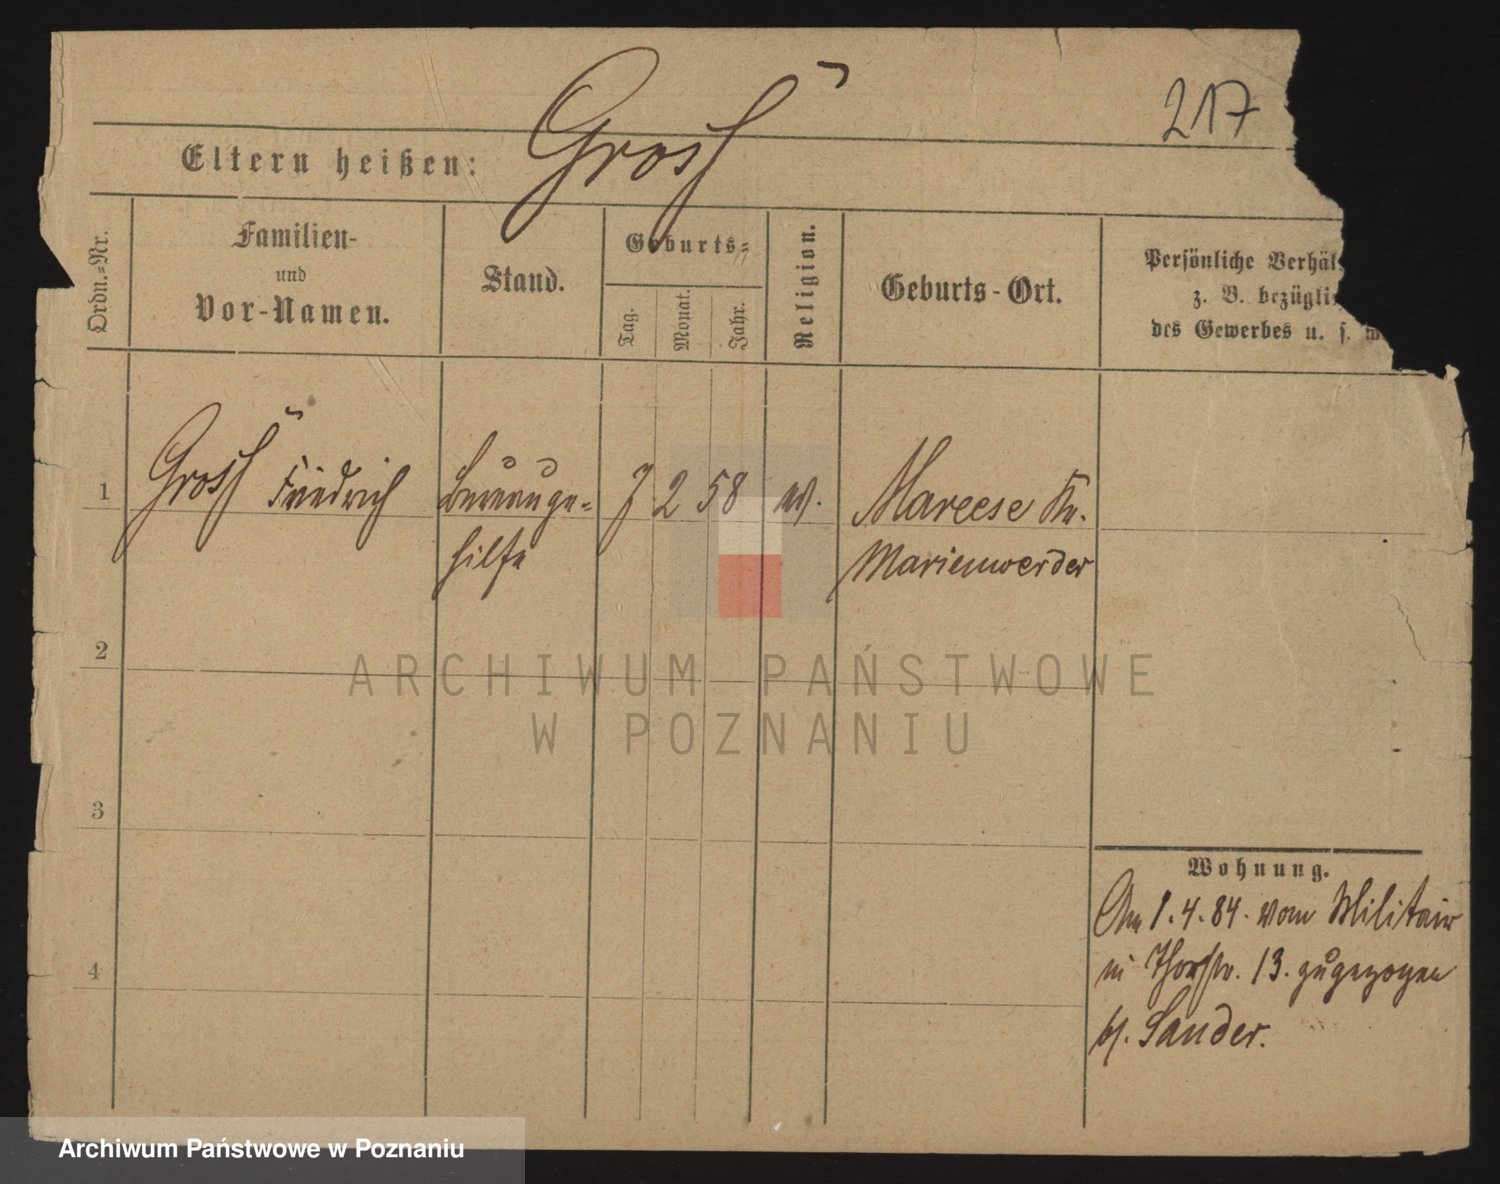 217
Eltern heißen: Groß
Ordn.-Nr.
Familien-
und
Vor-Namen.
Stand.
Geburts-
Tag.
Monat.
Jahr.
Religion.
Geburts-Ort.
Persönliche Verhäl
z. B. bezügli
des Gewerbes u. s. w
1 Groß Friedrich Bureauge- 7 2 58 Mareese Kr.
hilfe Marienwerder
2
3
4
Wohnung.
Am 1.4.84. vom Militair
13. zugezogen
b/. Sander.
ARCHIWUM PAŃSTWOWE
W POZNANIU
Archiwum Państwowe w Poznaniu